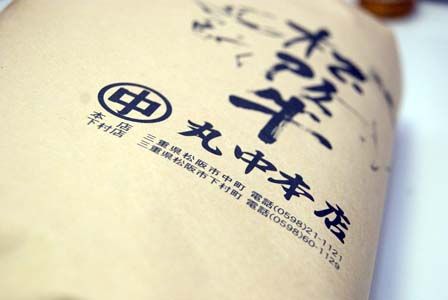 松阪牛
中
丸中本店
本店 三重県松阪市中町 電話(0598)21-1121
下村店 三重県松阪市下村町 電話(0598)60-1129